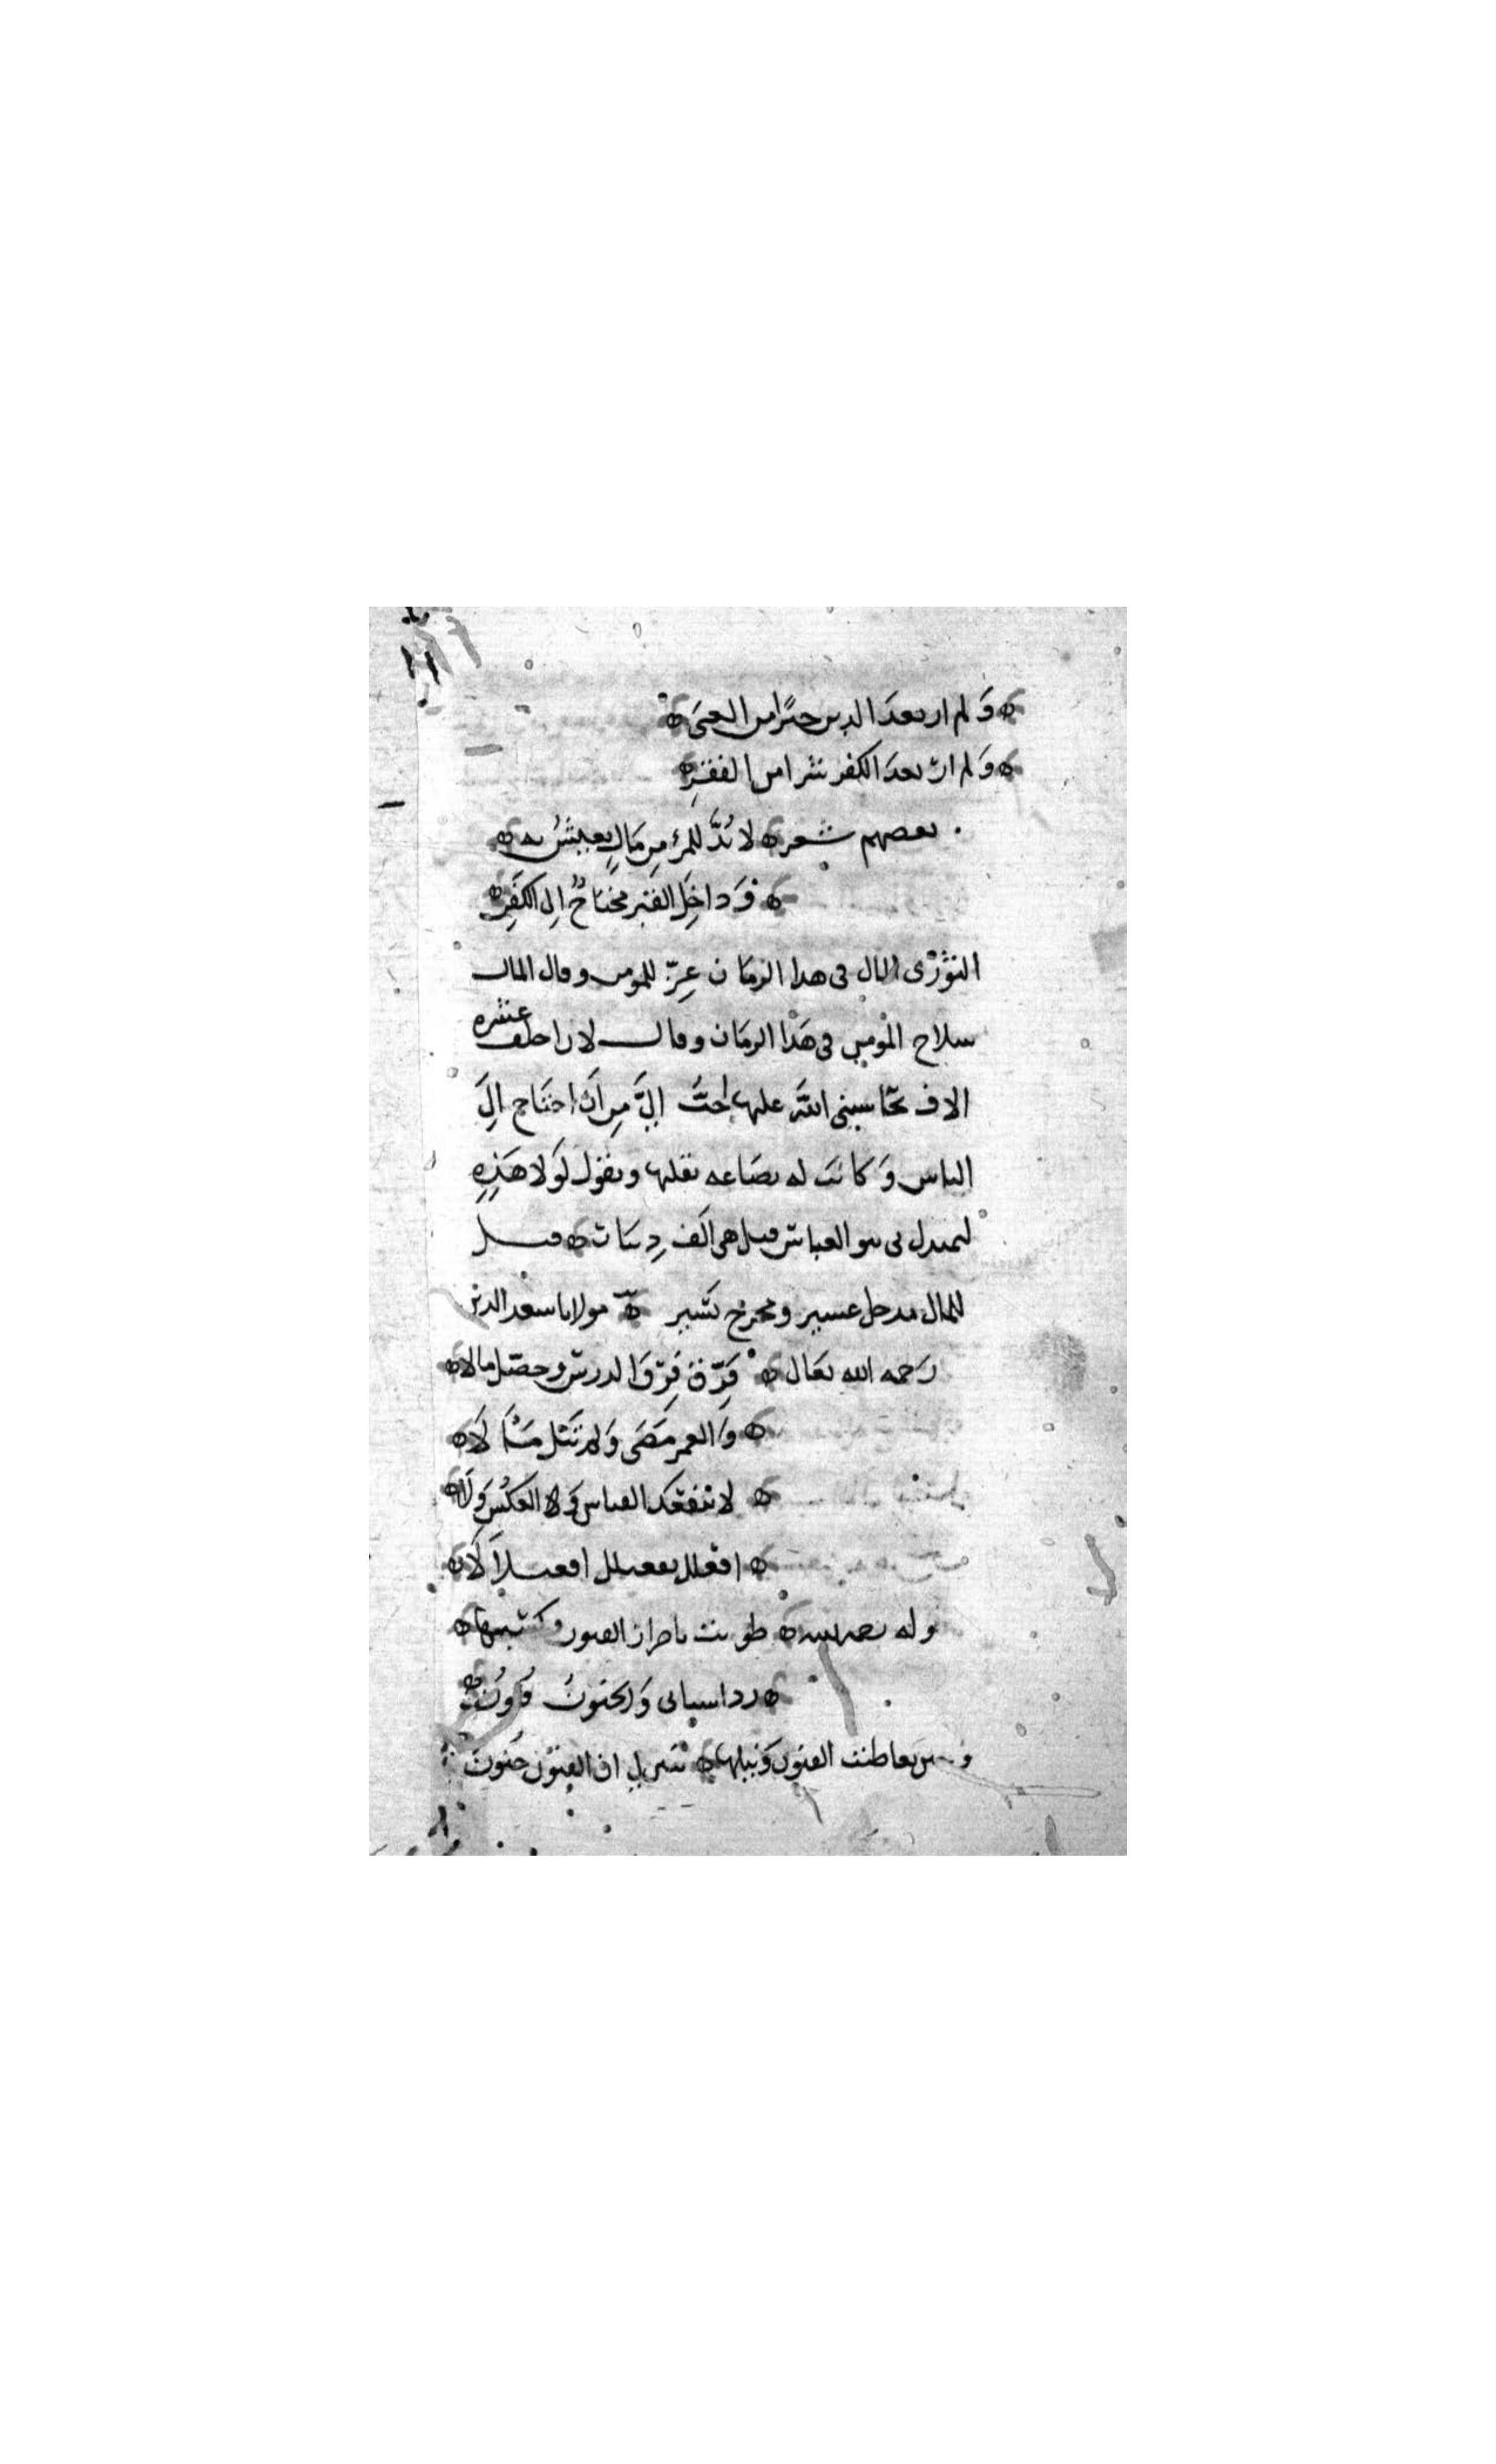 ولم ار بعدَ الدين خيرًا من الغنَى
ولم ار بعدَ الكفر شرا من الفقرِ
بعضهم شعر لا بُدَّ للمرءِ مِن مَالٍ يعيشُ به
وَداخِل القبر محتاجٌ الى الكفَنِ
الثوْرى المال فى هذا الزمان عِزّ للمومن وقال المال
سلاح المومِن فى هَذا الزمَان وقال لان اخلف عشره
الاف يحاسبنى اللهَ عليها احبُّ اليَّ مِن اَن احتاج الِىَ
الناس وَكانت له بضاعه يقلبها ويقول لَولا هَذِهِ
لتمندل بى بنو العباس قيل هى اَلف دِينار قيل
للمال مدخل عسير ومخرج يَسير مولانا سعد الدين
رَحمه الله تعالى فرّق فِرَق الدرس وحصّل مالا
وَالعمر مَضَى وَلم تَنَل آمَالَا
لا ينفعكَ القياس وَلا العَكسُ وَلَا
افعنلل يفعنلل افعنلالَا
وله رحمه الله طويت باحراز الفنون وكسبها
ردا شبابى وَالجنونُ فنُونُ
تعاطيت الفنون وَنيلها تبين لى ان الفنون جنون